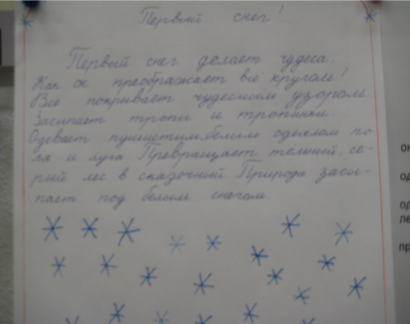 Первый снег!
Первый снег делает чудеса.
Как он преображает всё кругом!
Все покрывает чудесным узором.
Засыпает тропы и тропинки.
Одевает пушистым, белым одеялом по-
ля и луга. Превращает темный, се-
рый лес в сказочный. Природа засы-
пает под белым снегом.